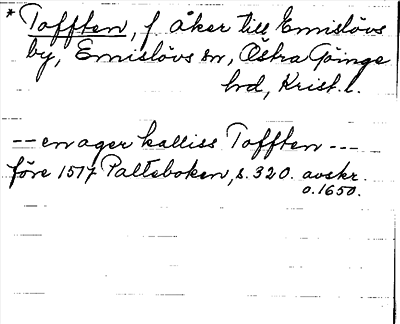 * Tofften, f. åker till Emislövs
by, Emislövs sn, Östra Göinge
hd, Krist. l.
-- en ager kalliss Tofften ---
före 1517 Palteboken, s. 320. avskr.
o. 1650.